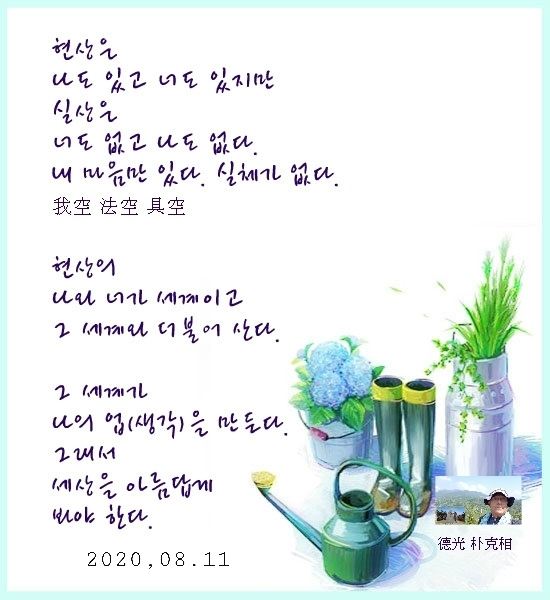 현상은
나도 있고 너도 있지만
실상은
너도 없고 나도 없다.
내 마음만 있다. 실체가 없다.
我空 法空 具空
현상의
나와 너가 세계이고
그 세계와 더불어 산다.
그 세계가
나의 업(생각)을 만든다.
그래서
세상을 아름답게
봐야 한다.
2020,08.11
德光 朴克相